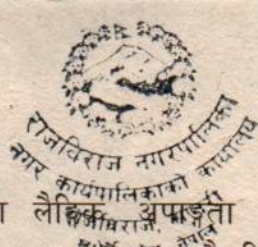 राजविराज नगरपालिका
नगर कार्यपालिकाको कार्यालय
राजविराज,
ा लैङ्गिक अपाङ्गता
नेपाल